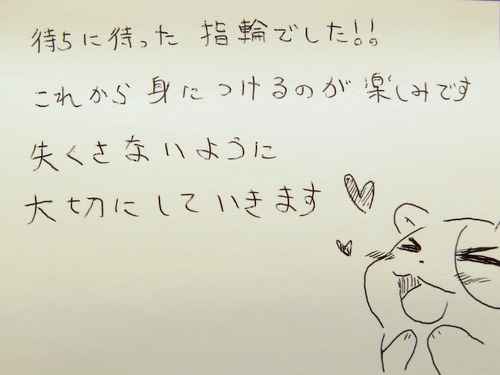 待ちに待った 指輪でした!!
これから 身につけるのが 楽しみです
失くさないように
大切にしていきます